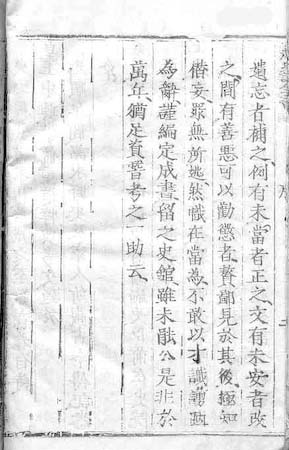 遺忘者補之例有未當者正之文有未安者改
之間有善惡可以勸懲者贅鄙見於其後極知
僭妄罪無所逃然職在當為不敢以才識譾陋
為辭謹編定成書留之史館雖未能公是非於
萬年猶足資考之一助云